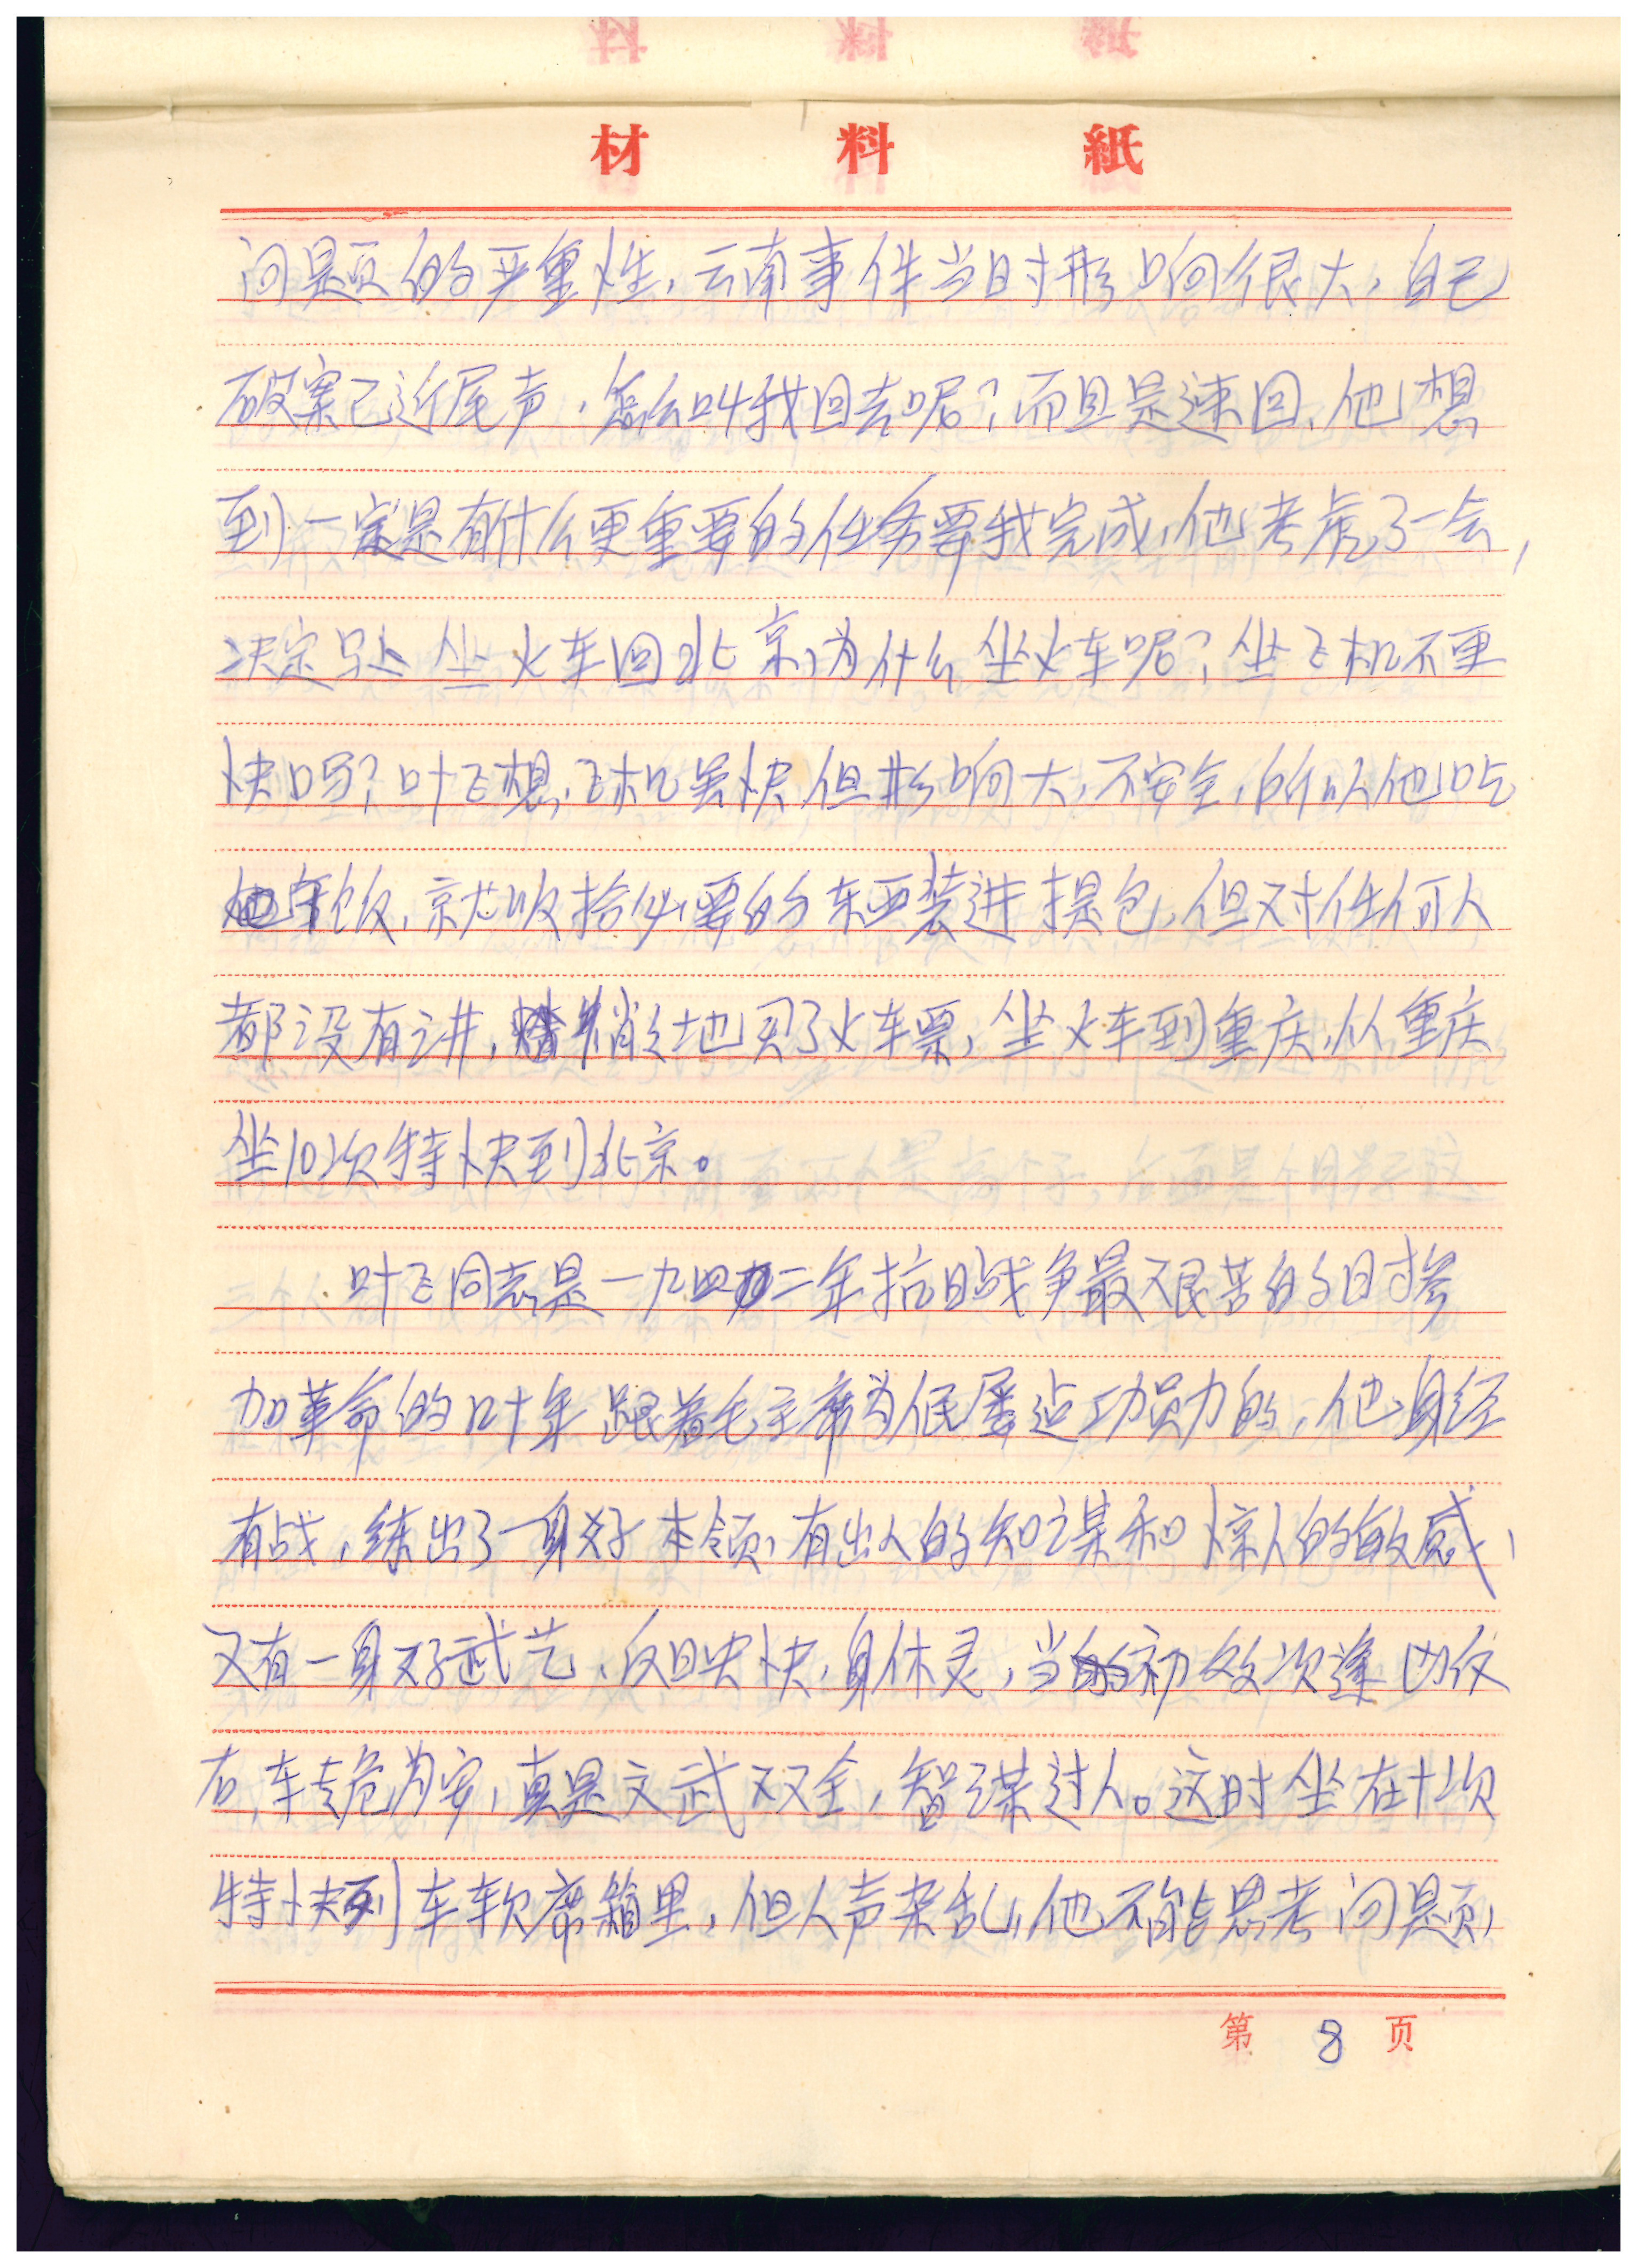 材料紙
问题的严重性，云南事件当时影响很大，自己
破案已近尾声，怎么叫我回去呢？而且是速回，他想
到一定是有什么更重要的任务要我完成，他考虑了一会，
决定马上坐火车回北京，为什么坐火车呢？坐飞机不更
快吗？叶飞想，飞机虽快但影响大，不安全，所以他吃
午饭，就收拾必要的东西装进提包，但对任何人
都没有讲，悄悄地买了火车票，坐火车到重庆，从重庆
坐10次特快到北京。
叶飞同志是一九四二年抗日战争最艰苦的时参
加革命的叶年跟着毛主席为民屡运功员力的，他身经
有战，练出了一身好本领，有出人的知谋和惊人的敏感，
又有一身好武艺，反映快，身体灵，当初数次逢凶仅
右，车专危为安，真是文武双全，智谋过人。这时坐在十次
特快列车软席箱里，但人声杂乱，他不能思考问题，
第8页